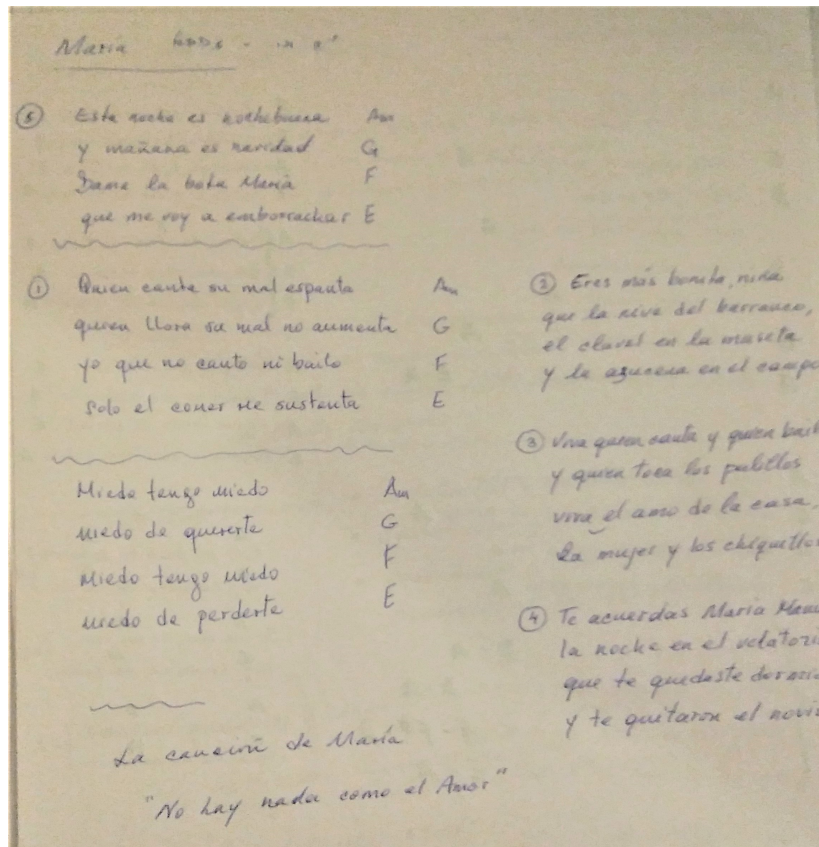 María
⑤ Esta noche es nochebuena Am
y mañana es navidad G
Dame la bota María F
que me voy a emborrachar E
① Quien canta su mal espanta Am
quien llora su mal no aumenta G
yo que no canto ni bailo F
solo el comer me sustenta E
Miedo tengo miedo Am
miedo de quererte G
Miedo tengo miedo F
miedo de perderte E
La canción de María
"No hay nada como el Amor"
② Eres más bonita, niña
que la nive del barranco,
el clavel en la maseta
y la azucena en el campo
③ Viva quien canta y quien bail
y quien toca los palillos
viva el amo de la casa,
la mujer y los chiquillo
④ Te acuerdas María
la noche en el velatori
que te quedaste dormi
y te quitaron el novi